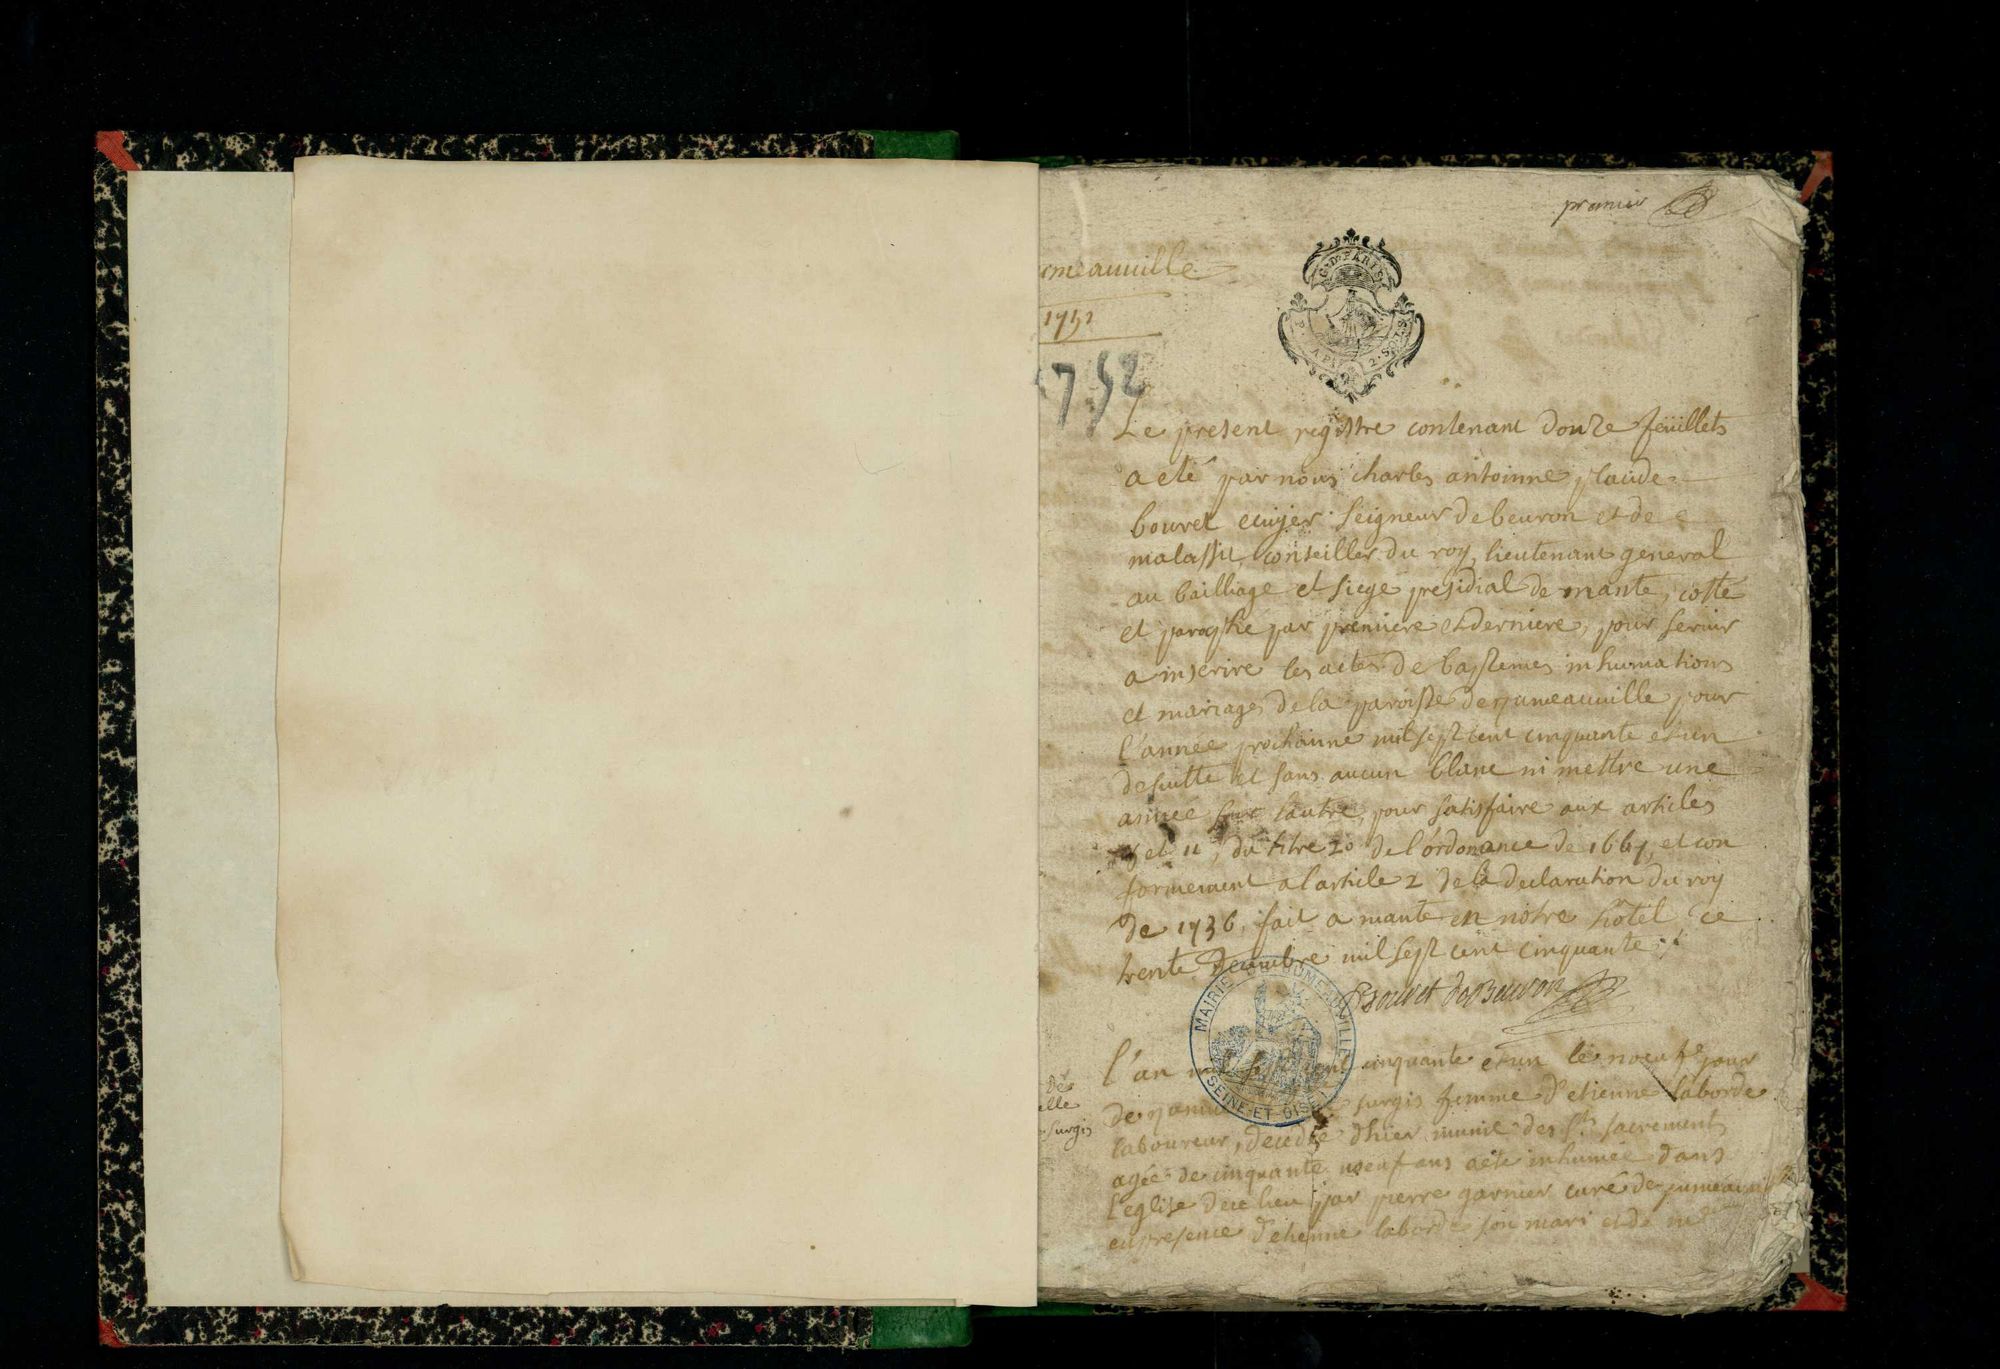 premier
G. DE PARIS
2. SOLS
meauville
1751
1752
Le present registre contenant douze feuillets
a eté par nous charles antoinne claude
bouret ecuyer seigneur de beuron et de
malassis, conseiller du roy, lieutenant general
au bailliage et siege presidial de mante, cotté
et paraphé par premiere et derniere, pour servir
a inscrire les actes de baptemes inhumations
et mariages de la paroisse de jumeauville pour
l'année prochainne mil sept cent cinquante et un
de suitte et sans aucun blanc ni mettre une
année sur l'autre, pour satisfaire aux articles
et 11, du titre 20 de l'ordonance de 1667, et con
formement a l'article 2 de la declaration du roy
de 1736, fait a mante en notre hotel, ce
trente decembre mil sept cent cinquante
Bouret de Beuron
MAIRIE DE JUMEAUVILLE
SEINE-ET-OISE
l'an cinquante et un le noeufe jour
de surgis femme d'etienne laborde
laboureur, decedée d'hier munie des sts sacrements
agée de cinquante noeuf ans a eté inhumée dans
l'eglise de ce lieu par pierre garnier curé de jumeauville
en presence d'etienne laborde son mari et de
elle
surgis